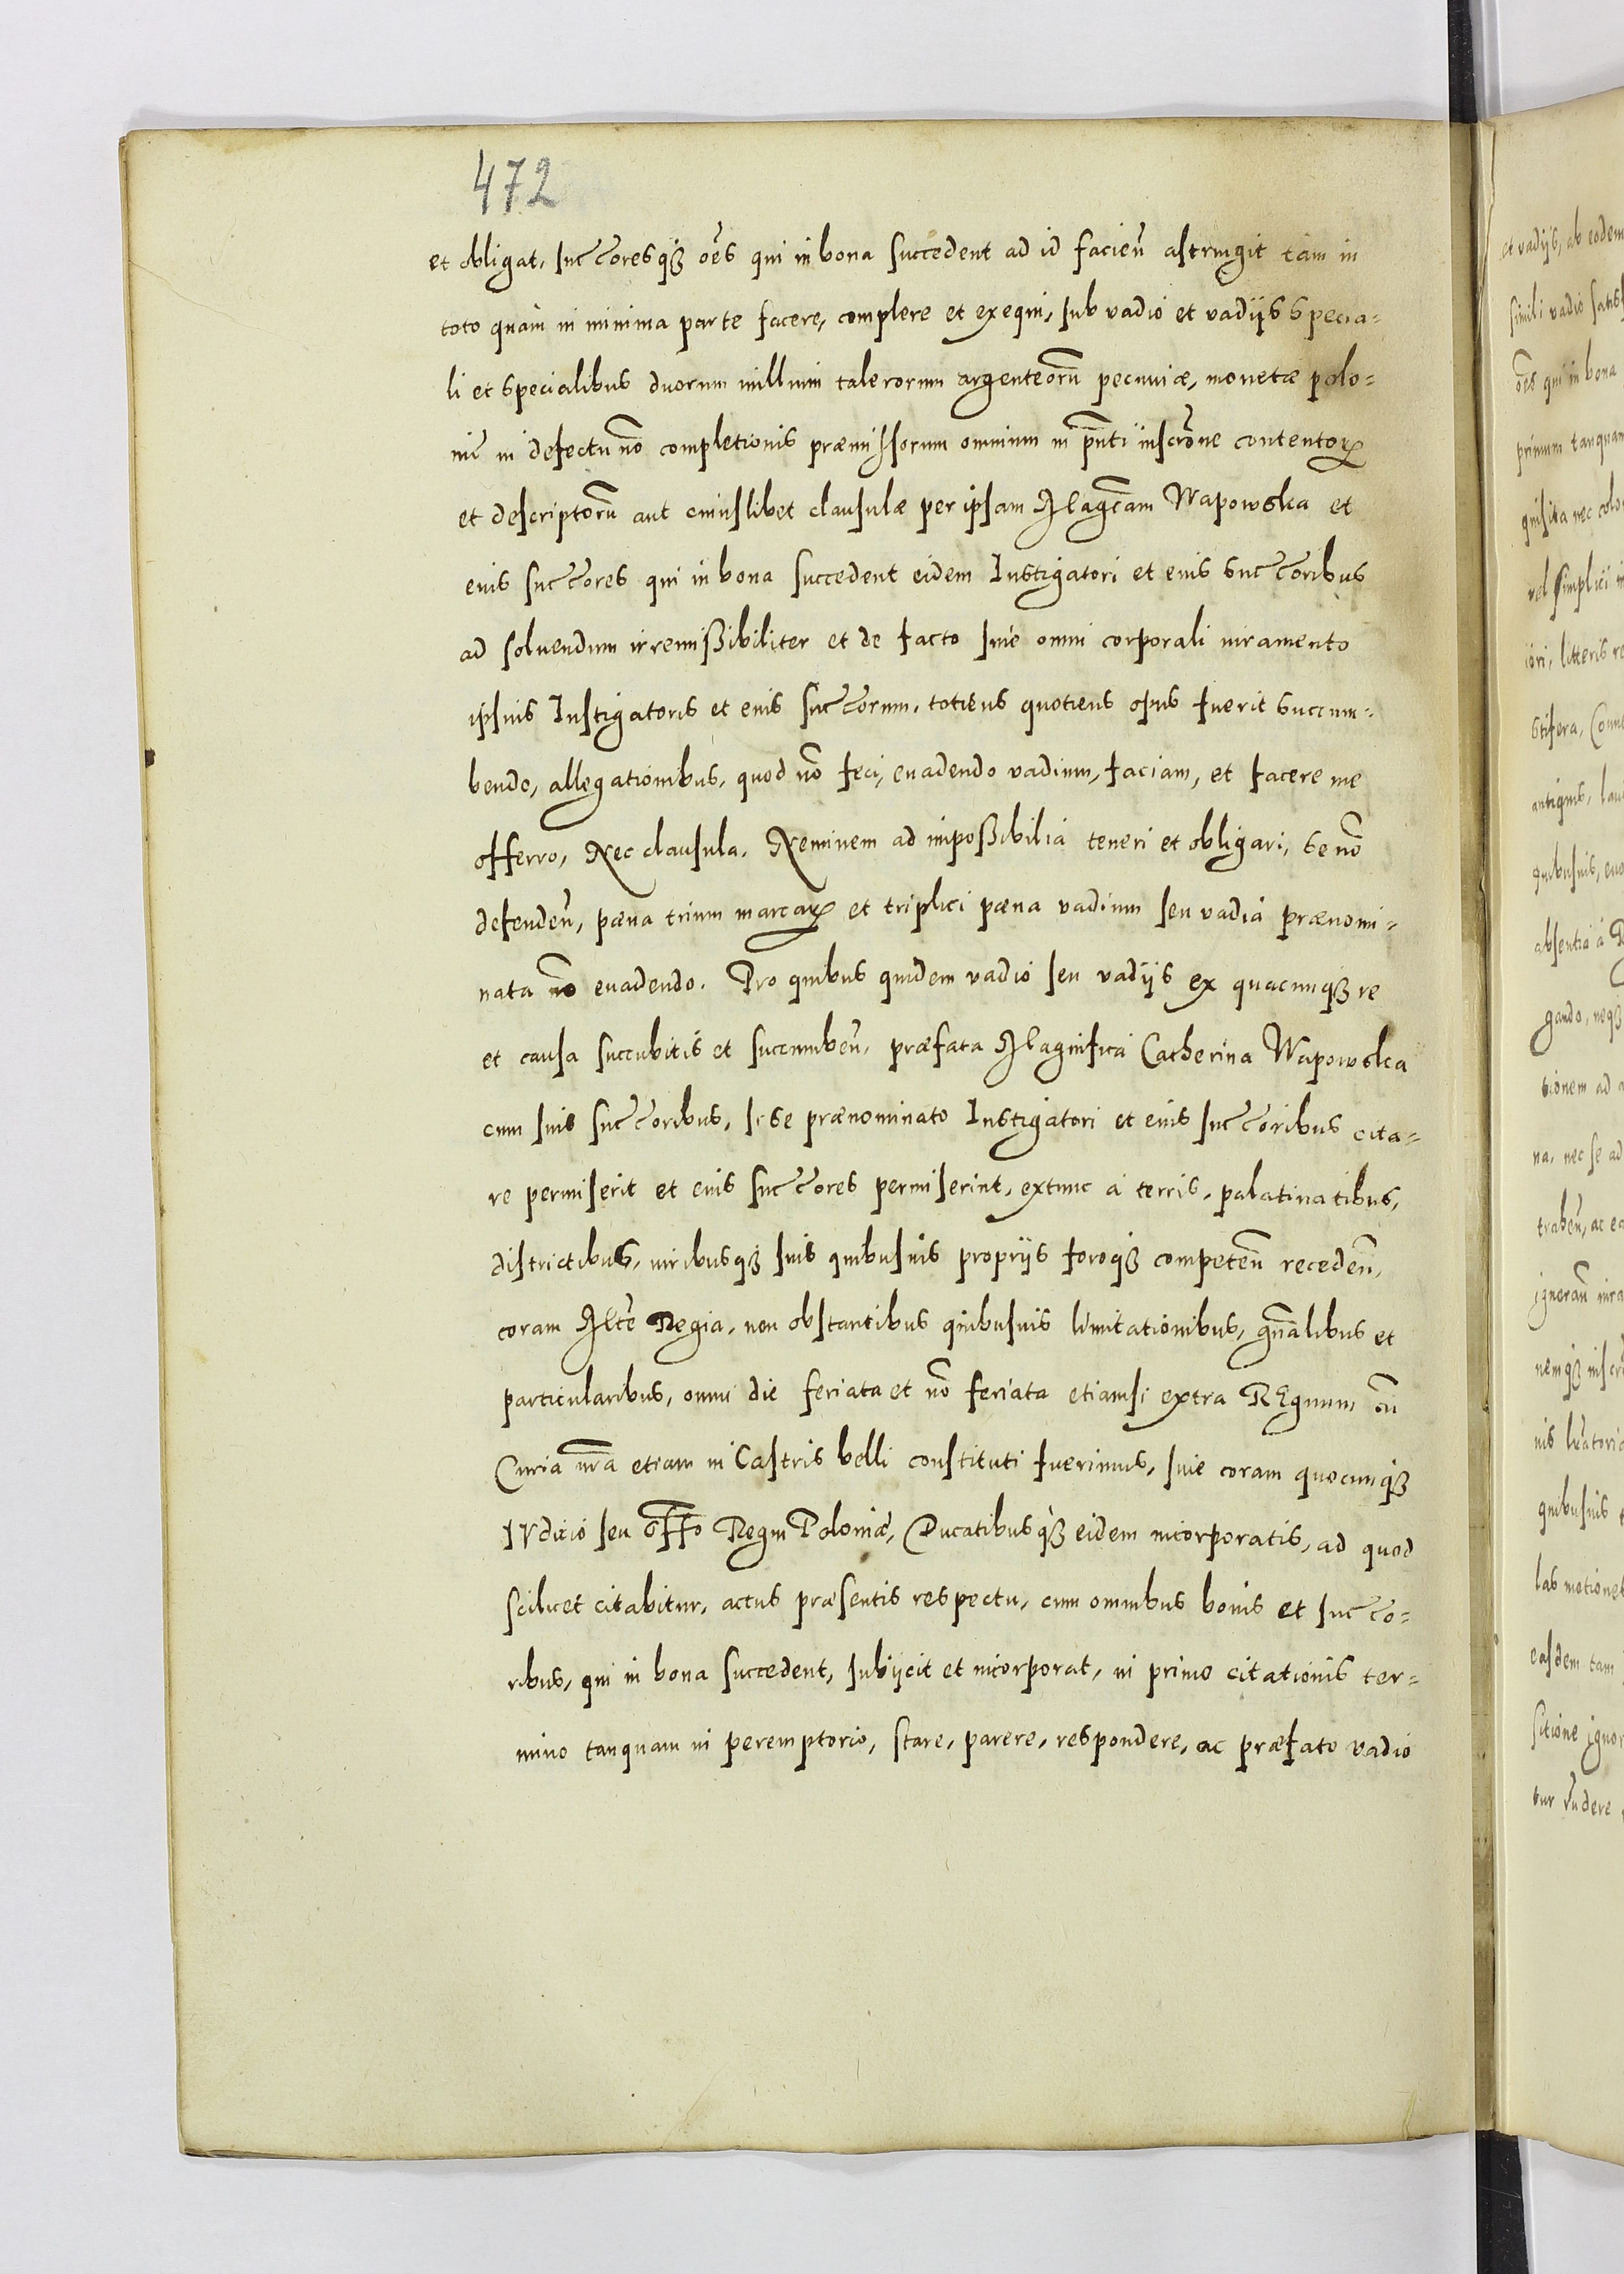 472
et obligat, succores q3 oẽs qui in bona succedent ad id facieñ astringit tam in
toto quàm in minima parte facere, complere et exequi, sub vadio et vadijs specia=
li et specialibus duorum millium talerorum argenteorũ pecuniæ, monetæ polo=
nĩ in defectu nõ completionis præmissorum omnium in pñti inscrõne contentoꝝ
et descriptorũ aut cuiuslibet clausulæ per ipsam Magcam Wapowska et
eius succores qui in bona succedent eidem Instigatori et eius succoribus
ad soluendum irremißibiliter et de facto siue omni corporali iuramento
ipsius Instigatoris et eius succorum, totiens quotiens opus fuerit succum=
bendo, allegationibus, quod nõ feci, euadendo vadium, faciam, et facere me
offerro, Nec clausula, Neminem ad impoßibilia teneri et obligari, se nõ
defendeñ, pæna trium marcaꝝ et triplici pæna vadium seu vadia prænomi=
nata nõ euadendo. Pro quibus quidem vadio seu vadijs ex quacunq3 re
et causa succubitis et succumbeñ, præfata Magnifica Catherina Wapowska
cum suis succoribus, si se prænominato Instigatori et eius succoribus cita=
re permiserit et eius succores permiserint, extunc à terris, palatinatibus,
districtibus, iuribusq3 suis quibusuis proprijs foroq3 competeñ recedeñ,
coram Mte Regia, non obstantibus quibusuis limitationibus, gnãlibus et
particularibus, omni die feriata et nõ feriata etiamsi extra REgnum cũ
Curia nrã etiam in Castris belli constituti fuerimus, siue coram quocunq3
IVdicio seu offo Regni Poloniæ, Ducatibusq3 eidem incorporatis, ad quod
scilicet citabitur, actus præsentis respectu, cum omnibus bonis et succo=
ribus, qui in bona succedent, subijcit et incorporat, in primo citationis ter=
mino tanquam in peremptorio, stare, parere, respondere, ac præfato vadio
et vadijs, ab eodem
simili vadio satis
oẽs qui in bona
primum tanquam
quisita nec colo
vel simplici in
iori, litteris re
stifera,
antiquis,
quibusuis, euo
absentia à
gando, neq3
tionem ad a
na, nec se ad
traheñ, ac ea
igneram iura
nemq3 inscr
quibusuis
las motione
easdem tam
sitione ignor
tur rñdere